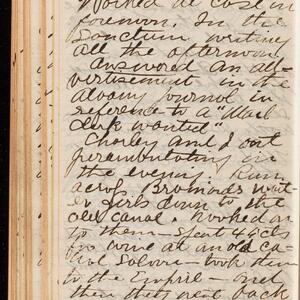 Worked at Cost in
forenoon. In the
Sanctum writing
all the afternoon
Answered an ad-
vertisement in the
Albany Journal in
reference to a "Mail
Clerk wanted"
Charley and I out
perambulating in
the evening. Run
across
er girls down to the
old canal. Hooked on
to them – Spent 44 cts
for wine at an old ca-
nal Saloon – took them
to the Empire – and
then they went back